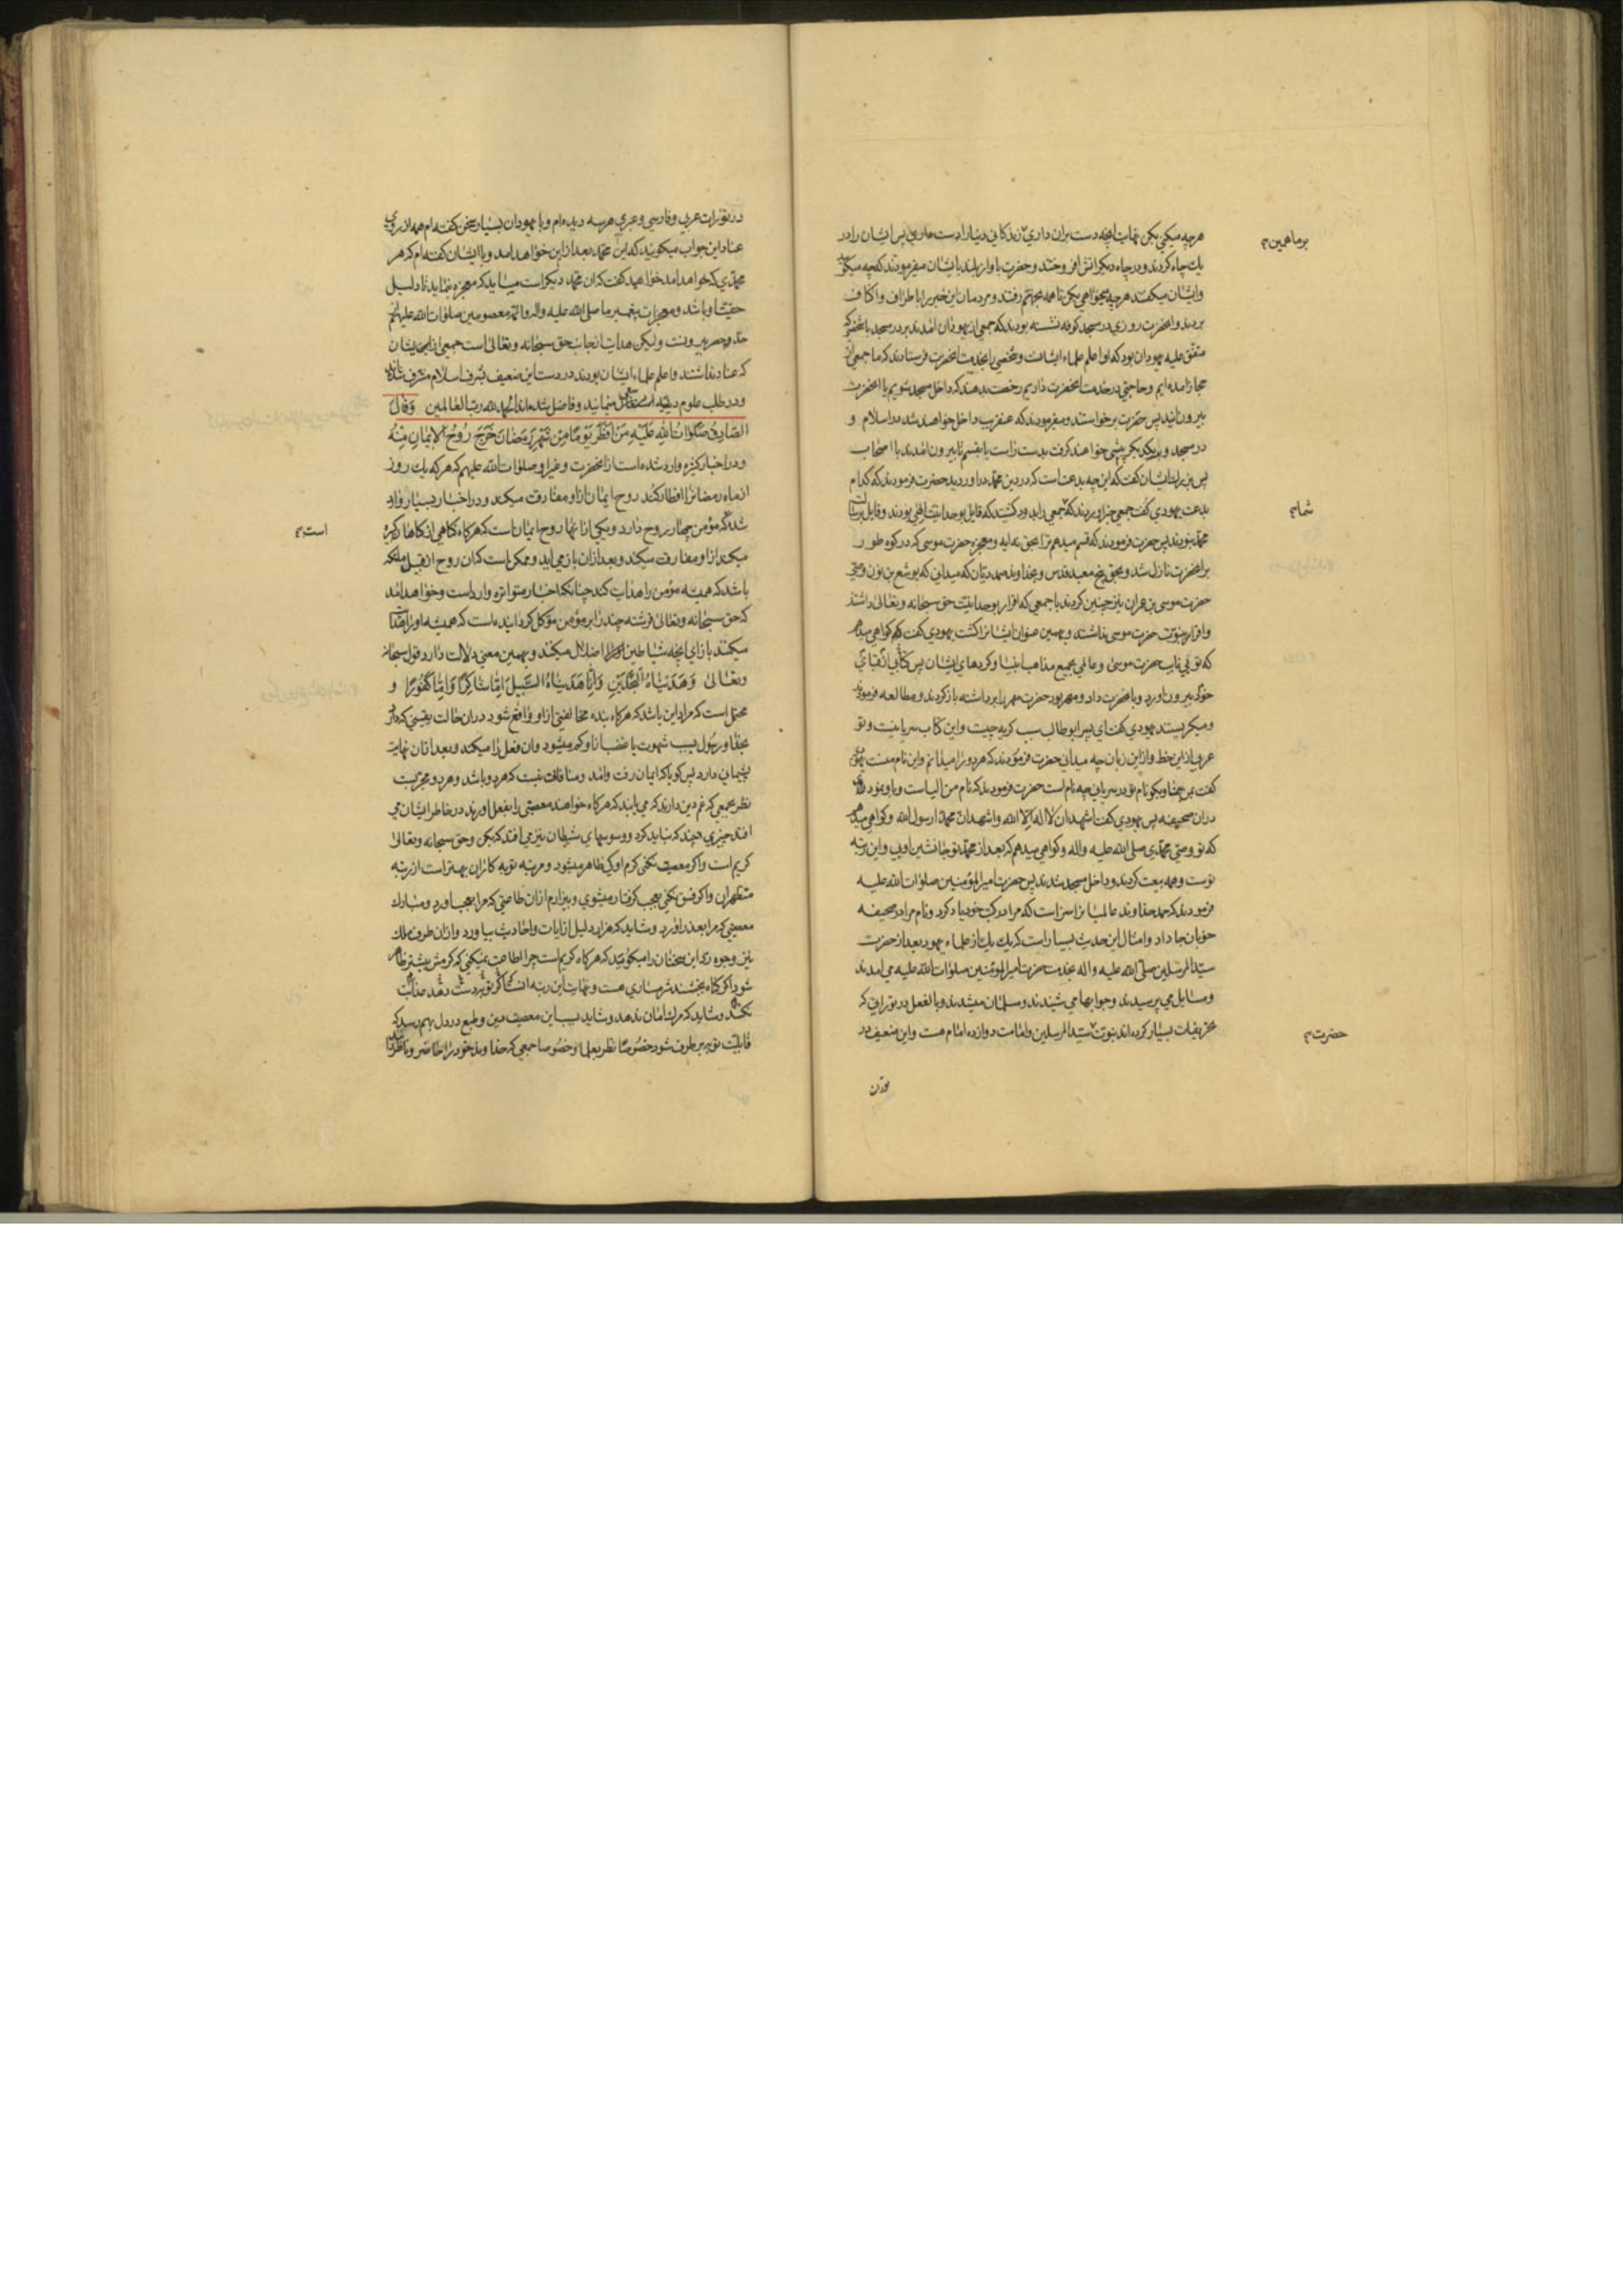 هرچه میکنی بکن نهایت انچه دست بران داری زندکانی دنیا را دست ماری پس ایشان را در
یك چاه کردند و در چاه دیکر اتش افروختند و حضرت باواز بلند بایشان میفرمودند که چه میکوئید
وایشان میکفتند هرچه میخواهی بکن تا همه بجهنم رفتند و مردمان این خبر را باطراف واکناف
بردند وانحضرت روزی در مسجد کوفه نشسته بودند که جمعی از یهودان امدند بر در مسجد با شخصی که
متفق علیه یهودان بود که او اعلم علماء ایشانست و شخصی را بخدمت انحضرت فرستادند که ما جمعی از
حجاز امده ایم و حاجتی در خدمت انحضرت داریم رخصت بدهند که داخل مسجد شویم یا انحضرت
بیرون ایند پس حضرت برخواستند و میفرمودند که عنقریب داخل خواهند شد در اسلام و
در مسجد و
پس بزرك ایشان کفت که این چه بدعت است که در دین محمد در اوردید حضرت فرمودند که کدام
بدعت یهودی کفت جمعی را بدود کشتید که قایل بوحدانیت الهی بودند و قایل برسالت
محمد نبودند پس حضرت فرمودند که قسم میدهم ترا بحق نه ایه و معجزه حضرت موسی که در کوه طور
برانحضرت نازل شد و بحق پنج معبد قدس و بخداوند صمد دیان که میدانی که یوشع بن نون وصی
حضرت موسی بن عمران نیز چنین کردند با جمعی که اقرار بوحدانیت حق سبحانه و تعالی داشتند
واقرار بنبوت حضرت موسی نداشتند و بهمین عنوان ایشانرا کشت یهودی کفت که کواهی میدهم
که توئی نایب حضرت موسی و عالمی بجمیع مذاهب انبیا و کردهای ایشان پس کتابی از قبای
خود بیرون اورد و بانحضرت داد و مهر بود حضرت مهر را برداشته باز کردند و مطالعه فرمودند
ومیکریستند یهودی کفت ای پسر ابوطالب سبب کریه چیست و این کتاب سریانیست و تو
عربی از این خط و از این زبان چه میدانی حضرت فرمودند که هر دو را میدانم و این نام منست یهودی
کفت بمن بنما و بکو نام تو در سریانی چه نام است حضرت فرمودند که نام من الیاست و باو نمودند
دران صحیفه پس یهودی کفت اشهد ان لا اله الا الله و اشهد ان محمدا رسول الله و کواهی میدهم
که تو وصی محمدی صلی الله علیه واله و کواهی میدهم که بعد از محمد تو جانشین اویی و این رتبه
تست و همه بیعت کردند و داخل مسجد شدند پس حضرت امیرالمؤمنین صلوات الله علیه
فرمودند که حمد خداوند عالمیانرا سزاست که مرا در کتب خود یاد کرد و نام مرا در صحیفه
خوبان جا داد و امثال این حدیث بسیار است که یك یك از علماء یهود بعد از حضرت
سیدالمرسلین صلی الله علیه و اله بخدمت حضرت امیرالمؤمنین صلوات الله علیه می امدند
ومسایل می پرسیدند و جوابها می شنیدند و مسلمان میشدند و بالفعل در توراتی که
تحریفات بسیار کرده اند نبوت سیدالمرسلین و امامت دوازده امام هست و این ضعیف در
بر ماهمین
شما
حضرت
توران
در تورات عربی و فارسی و عبری هر سه دیده ام و با یهودان بسیار سخن کفته ام همه از روی
عناد این جواب میکویند که این محمد بعد از این خواهد امد و با ایشان کفته ام که هر
محمدی که خواهد امد خواهید کفت که ان محمد دیکر است میباید که معجزه نماید تا دلیل
حقیت او باشد و معجزات پیغمبر ما صلی الله علیه واله وائمه معصومین صلوات الله علیهم از
حد و حصر بیرونست و لیکن هدایت از جانب حق سبحانه و تعالی است جمعی از ایشان
که عناد نداشتند و اعلم علماء ایشان بودند در دست این ضعیف بشرف اسلام مشرف شدند
و در طلب علوم دینیه اشتغال مینمایند و فاضل شده اند الحمد لله رب العالمین وَقَالَ
الصَّادِقُ صَلَوَاتُ اللهِ عَلَيْهِ مَنْ اَفْطَرَ يَوْمًا مِنْ شَهْرِ رَمَضَانَ خَرَجَ رُوحُ الْاِيمَانِ مِنْهُ
و در اخبار کثیره وارد شده است از انحضرت و غیر او صلوات الله علیهم که هر که یك روز
از ماه رمضانرا افطار کند روح ایمان از او مفارقت میکند و در اخبار بسیار وارد
شده که مؤمن چهار روح دارد و یکی از انها روح ایمان است که هرکاه کناهی از کناهان کبیره
میکند از او مفارقت میکند و بعد از ان باز می اید و ممکن است که ان روح از قبیل ملئکه
باشد که همیشه مؤمن را هدایت کند چنانکه اخبار متواتره وارد است و خواهد امد
که حق سبحانه و تعالی فرشته چند را بر مؤمن مؤکل کردانیده است که همیشه او را هدایت
میکنند بازای انچه شیاطین او را اضلال میکنند و بهمین معنی دلالت دارد قول سبحانه
وتعالی وَهَدَيْنَاهُ النَّجْدَيْنِ وَاِنَّا هَدَيْنَاهُ السَّبِيلَ اِمَّا شَاكِرًا وَاِمَّا كَفُورًا و
محتمل است که مراد این باشد که هرکاه بنده مخالفتی از او واقع شود در ان حالت یقینی که دارد
بخدا و رسول بسبب شهوت یا غضب از او کم میشود وان فعل را میکند و بعد از ان نهایت
پشیمانی دارد پس کویا که ایمان رفت وامد و منافات نیست که هر دو باشد و هر دو مجربست
نظر بجمعی که غم دین دارند که می یابند که هرکاه خواهند معصیتی را بفعل اورند در خاطر ایشان می
افتد چیزی چند که نباید کرد و وسوسهای شیطان نیز می افتد که بکن و حق سبحانه و تعالی
کریم است و اکر معصیت نکنی کرم او کی ظاهر میشود و مرتبه توبه کاران بهتر است از رتبه
متطهران و اکر فسق نکنی بعجب کرفتار میشوی و بیزارم از ان طاعتی که مرا بعجب اورد و مبارك
معصیتی که مرا بعذر اورد و شاید که هزار دلیل از ایات و احادیث بیاورد و از ان طرف ملك
نیز وجوه رد این سخنان را میکوید که هرکاه کریم است چرا اطاعت نمیکنی که کرمش بیشتر ظاهر
شود و اکر کناه بخشند شرمساری هست و نهایت این رتبه انست که اکر توبه دست دهد عذابت
نکند و شاید که مرك امان ندهد و شاید بسبب این معصیت رین و طبع در دل بهم رسد که
قابلیت توبه بر طرف شود خصوصا نظر بعلما و خصوصا جمعی که خداوند خود را حاضر و ناظر
است